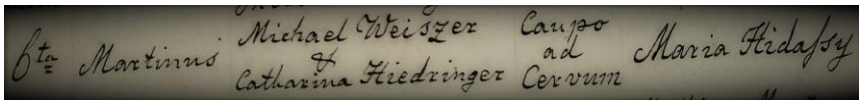 6ta Martinus Michael Weiszer & Catharina Hiedringer Caupo ad Cervum Maria Hidassy